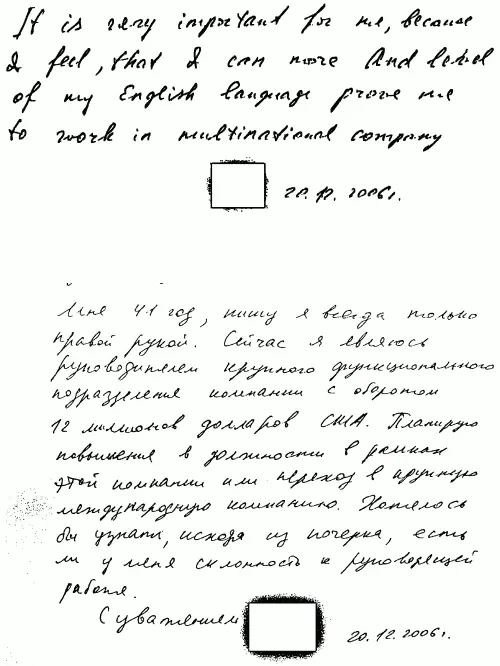 It is very important for me, because
I feel, that I can more And level
of my English language prove me
to work in multinational company
20.12.2006г.
Мне 41 год, пишу я всегда только
правой рукой. Сейчас я являюсь
руководителем крупного функционального
подразделения компании с оборотом
12 миллионов долларов США. Планирую
повышения в должности в рамках
этой компании или переход в крупную
международную компанию. Хотелось
бы узнать, исходя из почерка, есть
ли у меня склонность к руководящей
работе.
С уважением
20.12.2006г.